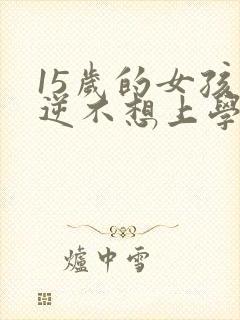 15歲的女孩
逆不想上學
爐中雪